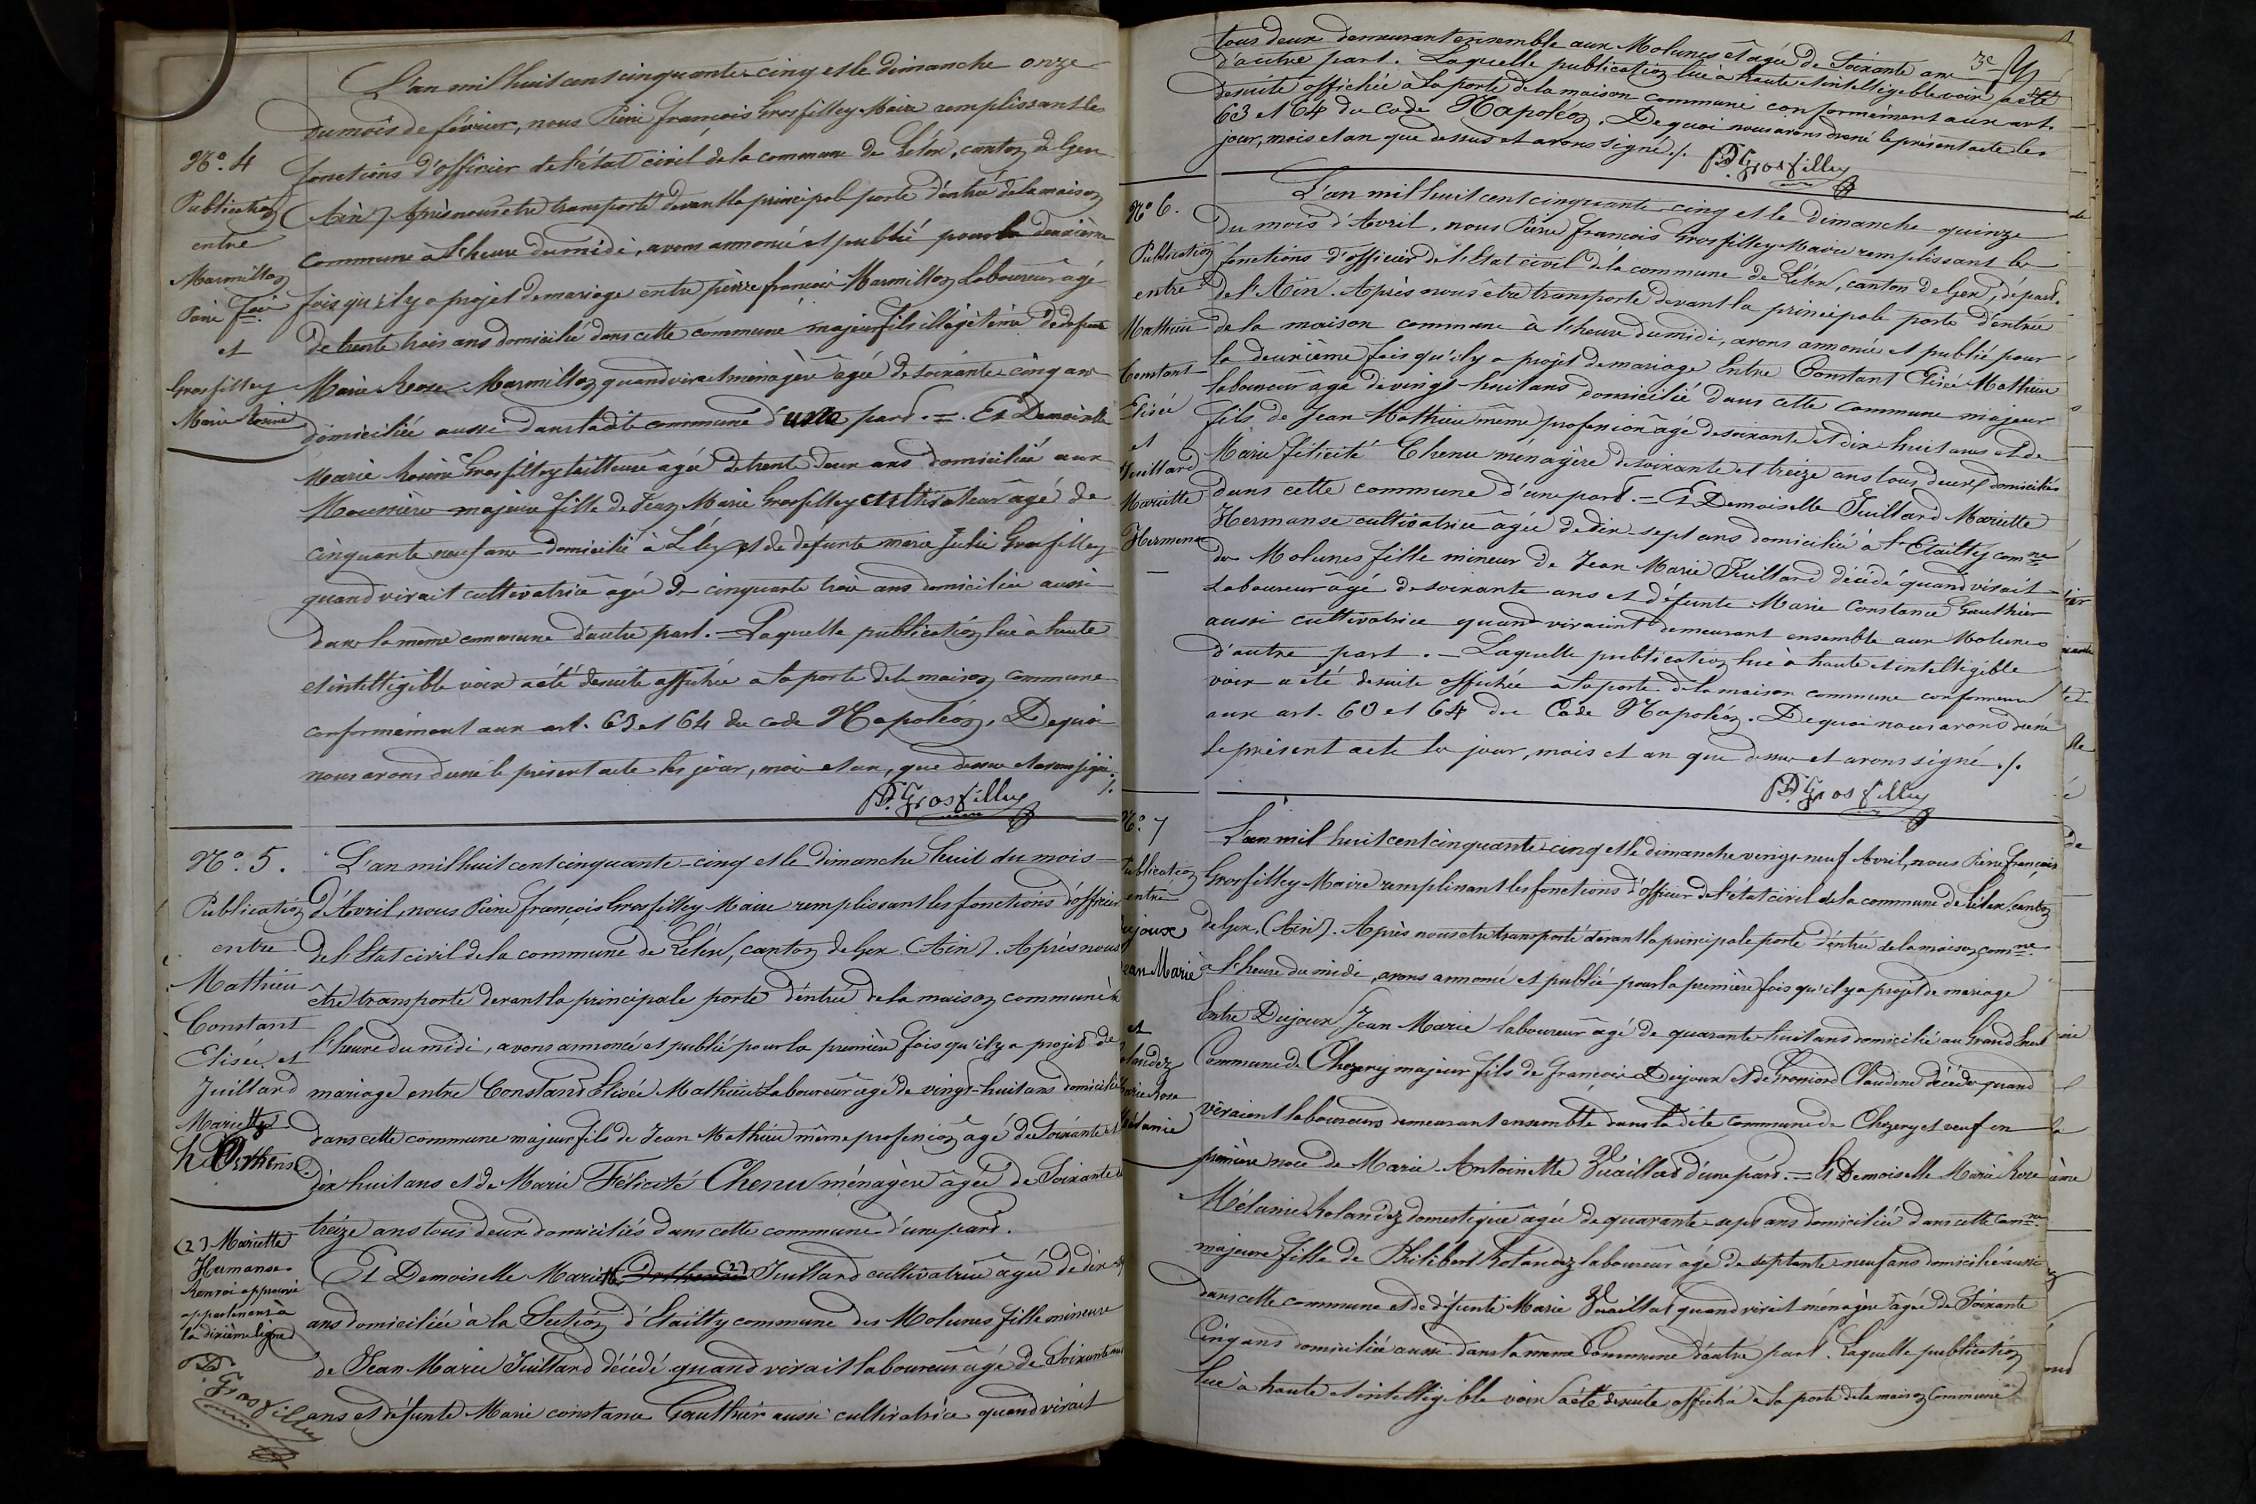 L'an mil huit cent cinquante-cinq et le dimanche onze
du mois de février, nous Pierre François Grosfilley Maire remplissant les
Nº. 4
fonctions d'officier de l'état civil de la commune de Lélex, canton de Gex
Publication
entre
Marmillon
Pierre Fois
et
Grosfilley
Marie Rosine
(Ain). Après nous etre transporté devant la principale porte d'entrée de la maison
commune à l'heure du midi, avons annoncé et publié pour la deuxième
fois qu'il y a projet de mariage entre pierre francois Marmillon Laboureur âgé
de trente trois ans domicilié dans cette commune majeur fils illégitime de defunte
Marie Rose Marmillon quand vivait ménagère âgée de soixante-cinq ans
domiciliée aussi dans ladite commune d'une part. = Et Demoiselle
Marie Rosine Grosfilley tailleuse âgée de trente deux ans domiciliée aux
majeure fille de Jean Marie Grosfilley cultivateur âgé de
cinquante neuf ans domicilié à Lélex et de defunte marie Julie Grosfilley
quand vivait cultivatrice âgée de cinquante trois ans domiciliée aussi
dans la même commune d'autre part. – Laquelle publication lue à haute
et intelligible voix a été desuite affichée à la porte de la maison commune
conformément aux art. 63 et 64 du code Napoléon. De quoi
nous avons dressé le présent acte les jour, mois et an, que dessus et avons signé ./.
P.F. Grosfilley
Nº. 5.
Publication
entre
Mathieu
Constant
Elisée et
Juillard
Mariette
L'an mil huit cent cinquante-cinq et le dimanche huit du mois
d'Avril, nous Pierre François Grosfilley Maire remplissant les fonctions d'officier
de l'Etat civil de la commune de Lélex, canton de Gex (Ain). Après nous
être transporté devant la principale porte d'entrée de la maison commune à
l'heure du midi, avons annoncé et publié pour la première fois qu'il y a projet de
mariage entre Constant Elisée Mathieu Laboureur âgé de vingt-huit ans domicilié
dans cette commune majeur fils de Jean Mathieu même profession âgé de Soixante et
dix huit ans et de Marie Félicité Chenu ménagère âgée de Soixante et
treize ans tous deux domiciliés dans cette commune d'une part.
(2) Mariette
Hermanse
Renvoi approuvé
appartenant à
la dixième ligne
P.F. Grosfilley
Et Demoiselle Mariette (2) Juillard cultivatrice âgée de dix-sept
ans domiciliée à la Section d'Etailly commune des Molunes fille mineure
de Jean Marie Juillard décédé quand vivait laboureur âgé de Soixante
ans et défunte Marie constance Gauthier aussi cultivatrice quand vivait
3e
tous deux demeurant ensemble aux Molunes et âgée de Soixante ans
d'autre part. Laquelle publication lue à haute et intelligible voix a été
desuite affichée à la porte de la maison commune conformément aux art.
63 et 64 du Code Napoléon. De quoi nous avons dressé le présent acte les
jour, mois et an que dessus et avons signé ./.
P.F. Grosfilley
Nº 6.
Publication
entre
Mathieu
Constant
Elisée
et
Juillard
Mariette
Hermanse
L'an mil huit cent cinquante-cinq et le dimanche quinze
du mois d'Avril, nous Pierre François Grosfilley Maire remplissant les
fonctions d'officier de l'état civil de la commune de Lélex, canton de Gex, départ.
de l'Ain. Après nous être transporté devant la principale porte d'entrée
de la maison commune à l'heure du midi, avons annoncé et publié pour
la deuxième fois qu'il y a projet de mariage Entre Constant Elisée Mathieu
laboureur âgé de vingt-huit ans domicilié dans cette commune majeur
fils de Jean Mathieu même profession âgé de soixante et dix-huit ans et de
Marie félicité Chenu ménagère de soixante et treize ans tous deux domiciliés
dans cette commune d'une part. = Et Demoiselle Juillard Mariette
Hermanse cultivatrice âgée de dix-sept ans domiciliée à l'Etailly comne
des Molunes fille mineur de Jean Marie Juillard décédé quand vivait
Laboureur âgé de soixante ans et défunte Marie Constance Gauthier
aussi cultivatrice quand vivaient demeurant ensemble aux Molunes
d'autre part. – Laquelle publication lue à haute et intelligible
voix a été desuite affichée à la porte de la maison commune conformément
aux art. 63 et 64 du Code Napoléon. De quoi nous avons dressé
le présent acte les jour, mois et an que dessus et avons signé ./.
P.F. Grosfilley
Nº. 7
Publication
entre
Dujoux
Jean Marie
et
Rolandez
Marie Rose
Mélanie
L'an mil huit cent cinquante-cinq et le dimanche vingt-neuf Avril, nous Pierre François
Grosfilley Maire remplissant les fonctions d'officier de l'état civil de la commune de Lélex, canton
de Gex, (Ain). Après nous etre transporté devant la principale porte d'entrée de la maison comne
à l'heure du midi, avons annoncé et publié pour la première fois qu'il y a projet de mariage
Entre Dujoux Jean Marie laboureur âgé de quarante-huit ans domicilié au Grand
Commune de Chezery majeur fils de François Dujoux et de Claudine décédés quand
vivaient laboureurs demeurant ensemble dans la dite commune de Chezery et veuf en
première noce de Marie-Antoinette d'une part. = Et Demoiselle Marie Rose
Mélanie Rolandez domestique âgée de quarante-sept ans domiciliée dans cette comne
majeure fille de Philibert Rolandez laboureur âgé de septante-neuf ans domicilié aussi
dans cette commune et de défunte Marie quand vivait ménagère âgée de Soixante
Cinq ans domiciliée aussi dans la même Commune d'autre part. Laquelle publication
lue à haute et intelligible voix a été desuite affichée à la porte de la maison Commune